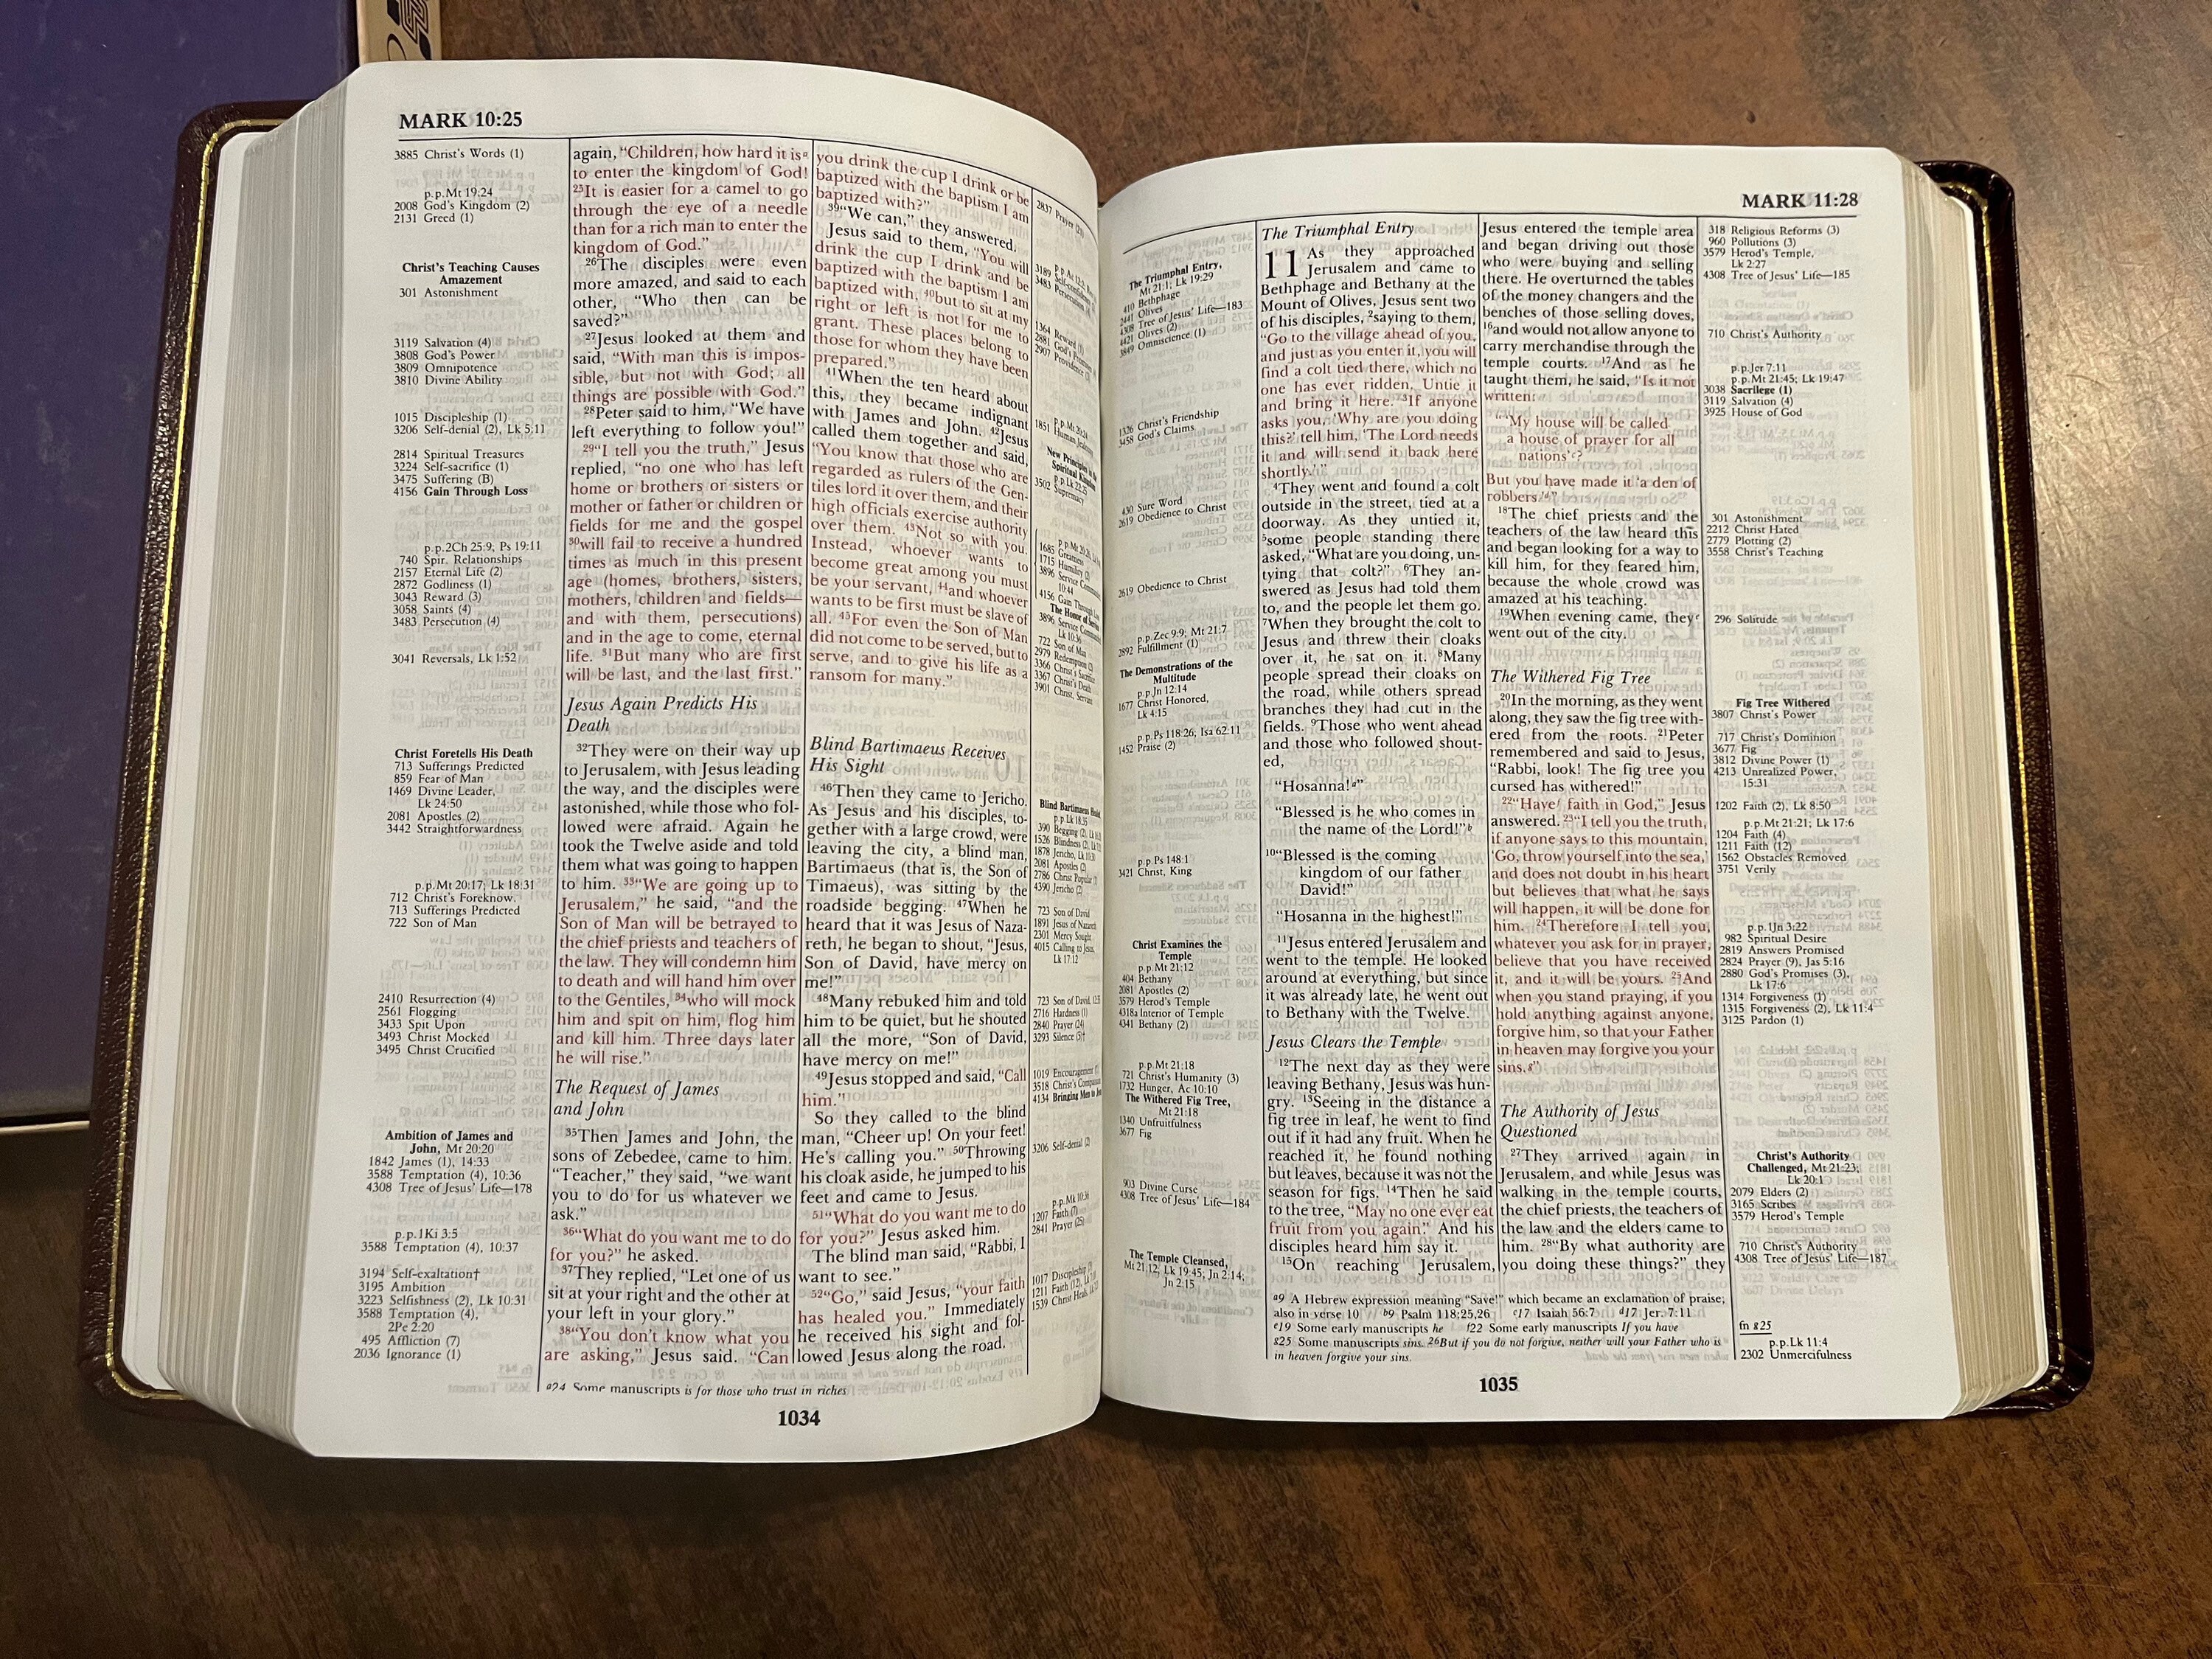 MARK 10:25
3885 Christ's Words (1)
p.p.Mt 19:24
2008 God's Kingdom (2)
2131 Greed (1)
Christ's Teaching Causes
Amazement
301 Astonishment
3119 Salvation (4)
3808 God's Power
3809 Omnipotence
3810 Divine Ability
1015 Discipleship (1)
3206 Self-denial (2), Lk 5:11
2814 Spiritual Treasures
3224 Self-sacrifice (1)
3475 Suffering (B)
4156 Gain Through Loss
p.p.2Ch 25:9, Ps 19:11
740 Spir. Relationships
2157 Eternal Life (2)
2872 Godliness (1)
3043 Reward (3)
3058 Saints (4)
3483 Persecution (4)
3041 Reversals, Lk 1:52
Christ Foretells His Death
713 Sufferings Predicted
859 Fear of Man
1469 Divine Leader,
Lk 24:50
2081 Apostles (2)
3442 Straightforwardness
p.p.Mt 20:17; Lk 18:31
712 Christ's Foreknow.
713 Sufferings Predicted
722 Son of Man
2410 Resurrection (4)
2561 Flogging
3433 Spit Upon
3493 Christ Mocked
3495 Christ Crucified
Ambition of James and
John, Mt 20:20
1842 James (1), 14:33
3588 Temptation (4), 10:36
4308 Tree of Jesus' Life—178
p.p.1Ki 3:5
3588 Temptation (4), 10:37
3194 Self-exaltation†
3195 Ambition
3223 Selfishness (2), Lk 10:31
3588 Temptation (4),
2Pe 2:20
495 Affliction (7)
2036 Ignorance (1)
again, “Children, how hard it is a
to enter the kingdom of God!
25“It is easier for a camel to go
through the eye of a needle
than for a rich man to enter the
kingdom of God.”
26The disciples were even
more amazed, and said to each
other, “Who then can be
saved?”
27Jesus looked at them and
said, “With man this is impos-
sible, but not with God; all
things are possible with God.”
28Peter said to him, “We have
left everything to follow you!”
29“I tell you the truth,” Jesus
replied, “no one who has left
home or brothers or sisters or
mother or father or children or
fields for me and the gospel
30will fail to receive a hundred
times as much in this present
age (homes, brothers, sisters,
mothers, children and fields—
and with them, persecutions)
and in the age to come, eternal
life. 31But many who are first
will be last, and the last first.”
Jesus Again Predicts His
Death
32They were on their way up
to Jerusalem, with Jesus leading
the way, and the disciples were
astonished, while those who fol-
lowed were afraid. Again he
took the Twelve aside and told
them what was going to happen
to him. 33“We are going up to
Jerusalem,” he said, “and the
Son of Man will be betrayed to
the chief priests and teachers of
the law. They will condemn him
to death and will hand him over
to the Gentiles, 34who will mock
him and spit on him, flog him
and kill him. Three days later
he will rise.”
The Request of James
and John
35Then James and John, the
sons of Zebedee, came to him.
“Teacher,” they said, “we want
you to do for us whatever we
ask.”
36“What do you want me to do
for you?” he asked.
37They replied, “Let one of us
sit at your right and the other at
your left in your glory.”
38“You don't know what you
are asking,” Jesus said. “Can
you drink the cup I drink or be
baptized with the baptism I am
baptized with?”
39“We can,” they answered.
Jesus said to them, “You will
drink the cup I drink and be
baptized with the baptism I am
baptized with, 40but to sit at my
right or left is not for me to
grant. These places belong to
those for whom they have been
prepared.”
41When the ten heard about
this, they became indignant
with James and John. 42Jesus
called them together and said,
“You know that those who are
regarded as rulers of the Gen-
tiles lord it over them, and their
high officials exercise authority
over them. 43Not so with you.
Instead, whoever wants to
become great among you must
be your servant, 44and whoever
wants to be first must be slave of
all. 45For even the Son of Man
did not come to be served, but to
serve, and to give his life as a
ransom for many.”
Blind Bartimaeus Receives
His Sight
46Then they came to Jericho.
As Jesus and his disciples, to-
gether with a large crowd, were
leaving the city, a blind man,
Bartimaeus (that is, the Son of
Timaeus), was sitting by the
roadside begging. 47When he
heard that it was Jesus of Naza-
reth, he began to shout, “Jesus,
Son of David, have mercy on
me!”
48Many rebuked him and told
him to be quiet, but he shouted
all the more, “Son of David,
have mercy on me!”
49Jesus stopped and said, “Call
him.”
So they called to the blind
man, “Cheer up! On your feet!
He's calling you.” 50Throwing
his cloak aside, he jumped to his
feet and came to Jesus.
51“What do you want me to do
for you?” Jesus asked him.
The blind man said, “Rabbi, I
want to see.”
52“Go,” said Jesus, “your faith
has healed you.” Immediately
he received his sight and fol-
lowed Jesus along the road.
2837 Prayer
3483
1364 Reward
2881
2907 Providence
p.p.Mt 20:24
1851 Human
New Principles
Spiritual Kingdom
p.p.Lk 22:25
3502 Supremacy
1685 Greatness
1715 Humility
3896 Service
10:44
4156 Gain Through
The Honor of
3896 Service
Lk 10:36
722 Son of Man
2979 Redemption
3366 Christ's Sacrifice
3367 Christ's Death
3901 Christ, Servant
Blind Bartimaeus
p.p.Lk 18:35
390 Begging (2),
1526 Blindness (2),
1878 Jericho,
2081 Apostles (2)
2786 Christ Popular
4390 Jericho (2)
723 Son of David
1891 Jesus of Nazareth
2301 Mercy Sought
4015 Calling to Jesus,
Lk 17:12
723 Son of David,
2716 Hardness (1)
2840 Prayer (24)
3293 Silence
1019 Encouragement
3518 Christ's
4134 Bringing Men to
3206 Self-denial (2)
p.p.Mk 10:36
1207 Faith (7)
2841 Prayer (25)
1017 Discipleship
1211 Faith (12),
1539 Christ
a24 Some manuscripts is for those who trust in riches
1034
MARK 11:28
The Triumphal Entry,
Mt 21:1; Lk 19:29
410 Bethphage
2441 Olives
4308 Tree of Jesus' Life—183
4421 Olives (2)
3849 Omniscience (1)
1326 Christ's Friendship
3458 God's Claims
430 Sure Word
2619 Obedience to Christ
2619 Obedience to Christ
p.p.Zec 9:9; Mt 21:7
2892 Fulfillment (1)
The Demonstrations of the
Multitude
p.p.Jn 12:14
1677 Christ Honored,
Lk 4:15
p.p.Ps 118:26; Isa 62:11
1452 Praise (2)
p.p.Ps 148:1
3421 Christ, King
Christ Examines the
Temple
p.p.Mt 21:12
404 Bethany
2081 Apostles (2)
3579 Herod's Temple
4318a Interior of Temple
4341 Bethany (2)
p.p.Mt 21:18
721 Christ's Humanity (3)
1732 Hunger, Ac 10:10
The Withered Fig Tree,
Mt 21:18
1340 Unfruitfulness
3677 Fig
903 Divine Curse
4308 Tree of Jesus' Life—184
The Temple Cleansed,
Mt 21:12, Lk 19:45; Jn 2:14;
Jn 2:15
The Triumphal Entry
11 As they approached
Jerusalem and came to
Bethphage and Bethany at the
Mount of Olives, Jesus sent two
of his disciples, 2saying to them,
“Go to the village ahead of you,
and just as you enter it, you will
find a colt tied there, which no
one has ever ridden. Untie it
and bring it here. 3If anyone
asks you, ‘Why are you doing
this?’ tell him, ‘The Lord needs
it and will send it back here
shortly.’”
4They went and found a colt
outside in the street, tied at a
doorway. As they untied it,
5some people standing there
asked, “What are you doing, un-
tying that colt?” 6They an-
swered as Jesus had told them
to, and the people let them go.
7When they brought the colt to
Jesus and threw their cloaks
over it, he sat on it. 8Many
people spread their cloaks on
the road, while others spread
branches they had cut in the
fields. 9Those who went ahead
and those who followed shout-
ed,
“Hosanna! a”
“Blessed is he who comes in
the name of the Lord!” b
10“Blessed is the coming
kingdom of our father
David!”
“Hosanna in the highest!”
11Jesus entered Jerusalem and
went to the temple. He looked
around at everything, but since
it was already late, he went out
to Bethany with the Twelve.
Jesus Clears the Temple
12The next day as they were
leaving Bethany, Jesus was hun-
gry. 13Seeing in the distance a
fig tree in leaf, he went to find
out if it had any fruit. When he
reached it, he found nothing
but leaves, because it was not the
season for figs. 14Then he said
to the tree, “May no one ever eat
fruit from you again.” And his
disciples heard him say it.
15On reaching Jerusalem,
Jesus entered the temple area
and began driving out those
who were buying and selling
there. He overturned the tables
of the money changers and the
benches of those selling doves,
16and would not allow anyone to
carry merchandise through the
temple courts. 17And as he
taught them, he said, “Is it not
written:
“‘My house will be called
a house of prayer for all
nations’ c?
But you have made it ‘a den of
robbers.’ d”
18The chief priests and the
teachers of the law heard this
and began looking for a way to
kill him, for they feared him,
because the whole crowd was
amazed at his teaching.
19When evening came, they e
went out of the city.
The Withered Fig Tree
20In the morning, as they went
along, they saw the fig tree with-
ered from the roots. 21Peter
remembered and said to Jesus,
“Rabbi, look! The fig tree you
cursed has withered!”
22“Have f faith in God,” Jesus
answered. 23“I tell you the truth,
if anyone says to this mountain,
‘Go, throw yourself into the sea,’
and does not doubt in his heart
but believes that what he says
will happen, it will be done for
him. 24Therefore I tell you,
whatever you ask for in prayer,
believe that you have received
it, and it will be yours. 25And
when you stand praying, if you
hold anything against anyone,
forgive him, so that your Father
in heaven may forgive you your
sins. g”
The Authority of Jesus
Questioned
27They arrived again in
Jerusalem, and while Jesus was
walking in the temple courts,
the chief priests, the teachers of
the law and the elders came to
him. 28“By what authority are
you doing these things?” they
318 Religious Reforms (3)
960 Pollutions (3)
3579 Herod's Temple,
Lk 2:27
4308 Tree of Jesus' Life—185
710 Christ's Authority
p.p.Jer 7:11
p.p.Mt 21:45; Lk 19:47
3038 Sacrilege (1)
3119 Salvation (4)
3925 House of God
301 Astonishment
2212 Christ Hated
2779 Plotting (2)
3558 Christ's Teaching
296 Solitude
Fig Tree Withered
3807 Christ's Power
717 Christ's Dominion
3677 Fig
3812 Divine Power (1)
4213 Unrealized Power,
15:31
1202 Faith (2), Lk 8:50
p.p.Mt 21:21; Lk 17:6
1204 Faith (4)
1211 Faith (12)
1562 Obstacles Removed
3751 Verily
p.p.1Jn 3:22
982 Spiritual Desire
2819 Answers Promised
2824 Prayer (9), Jas 5:16
2880 God's Promises (3),
Lk 17:6
1314 Forgiveness (1)
1315 Forgiveness (2), Lk 11:4
3125 Pardon (1)
Christ's Authority
Challenged, Mt 21:23;
Lk 20:1
2079 Elders (2)
3165 Scribes
3579 Herod's Temple
710 Christ's Authority
4308 Tree of Jesus' Life—187
fn g25
p.p.Lk 11:4
2302 Unmercifulness
a9 A Hebrew expression meaning “Save!” which became an exclamation of praise;
also in verse 10 b9 Psalm 118:25,26 c17 Isaiah 56:7 d17 Jer. 7:11
e19 Some early manuscripts he f22 Some early manuscripts If you have
g25 Some manuscripts sins. 26But if you do not forgive, neither will your Father who is
in heaven forgive your sins.
1035